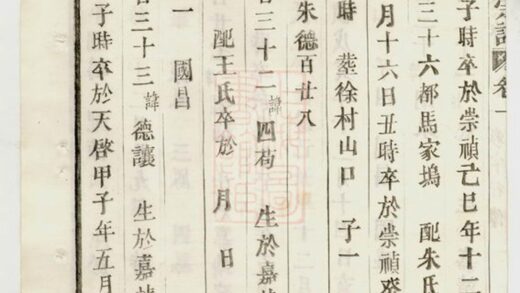 卷一
子時卒於崇禎己巳年十二
三十六都馬家塢 配朱氏
月十六日丑時卒於崇禎癸
時 塟徐村山口 子一
朱德百廿八
三十二 諱四苟 生於嘉靖
配王氏卒於 月 日
一 國昌
三十三 諱德讓 生於嘉
子時卒於天啓甲子年五月